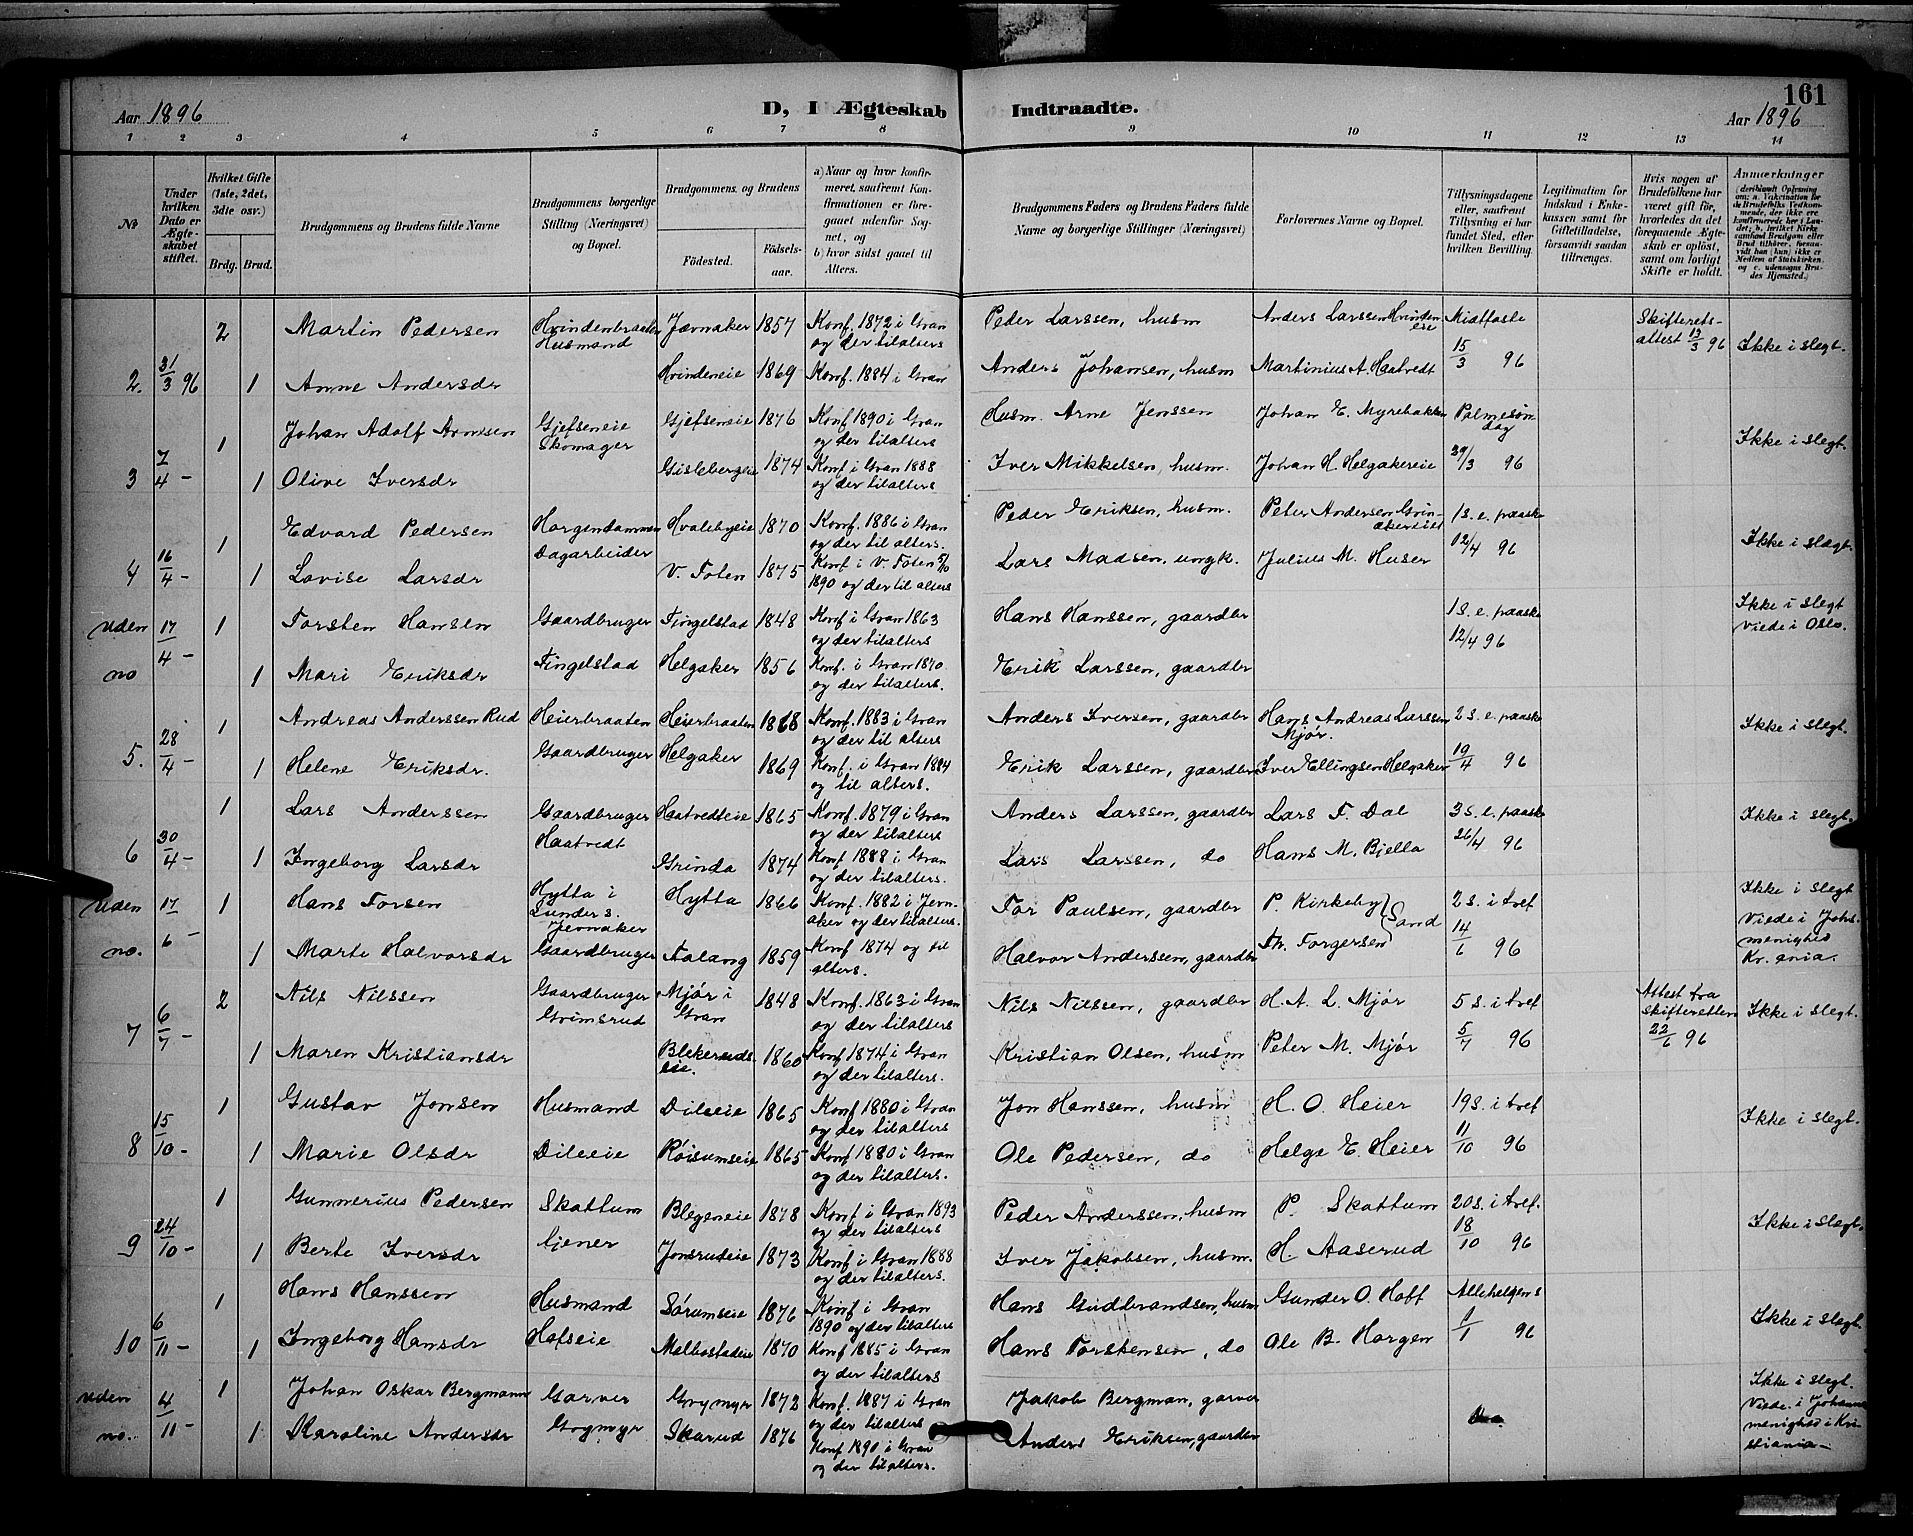 161
Aar 1896
D, I Ægteskab Indtraadte.
Aar 1896
1 2 3 4 5 6 7 8 9 10 11 12 13 14
No
Under hvilken Dato er Ægteskabet stiftet.
Hvilket Gifte (1ste, 2det, 3die osv.)
Brdg. Brud.
Brudgommens og Brudens fulde Navne
Brudgommens borgerlige Stilling (Næringsvei) og Bopæl.
Brudgommens og Brudens
Födested.
Födsels-aar.
a) Naar og hvor konfirmeret, saafremt Konfirmationen er foregaaet udenfor Sognet, og
b) hvor sidst gaaet til Alters.
Brudgommens Faders og Brudens Faders fulde Navne og borgerlige Stillinger (Næringsvei)
Forlovernes Navne og Bopæl.
Tillysningsdagene eller, saafremt Tillysning ei har fundet Sted, efter hvilken Bevilling.
Legitimation for Indskud i Enkekassen samt for Giftetilladelse, forsaavidt saadan tiltrænges.
Hvis nogen af Brudefolkene har været gift før, hvorledes da det foregaaende Ægteskab er oplöst, samt om lovligt Skifte er holdt.
Anmærkninger
2. 31/3 96
2 Martin Pedersen Hvindenbraaten Husmand Jævnaker 1857 Konf. 1872 i Gran og der tilalters Peder Larssen, husm Anders Larssen Hvindeneie Midtfaste 15/3 96 Skifterets-attest 13/3 96 Ikke i slegt.
1 Anne Andersdr Hvindeneie 1869 Konf. 1884 i Gran Anders Johansen, husm Martinius A. Haatvedt
3 7/4 -
1 Johan Adolf Arnesen Gjefseneie Skomager Gjefseneie 1876 Konf 1890 i Gran og der tilalters Husm. Arne Jenssen Johan E. Myrebakken Palmesøndag 29/3 96 Ikke i slegt.
1 Olive Iversdr Gislebergeie 1874 Konf i Gran 1888 og der tilalters Iver Mikkelsen, husm. Johan H. Helgakereie
4 16/4 -
1 Edvard Pedersen Horgendammen Dagarbeider Hvalebyeie 1870 Konf. 1886 i Gran og der til alters. Peder Eriksen, husm. Peter Andersen Grinakertuet 1 s. e. paaske 12/4 96 Ikke i slægt.
1 Lovise Larsdr V. Toten 1875 Konf i V. Toten 5/10 1890 og der til alters Lars Madsen, ungk. Julius M. Huser
uden no 17/4 -
1 Torsten Hansen Gaardbruger Tingelstad Tingelstad 1848 Konf i Gran 1863 og der tilalters Hans Hanssen, gaardbr 1 s. e. paaske 12/4 96 Ikke i slegt Viede i Oslo.
1 Mari Eriksdr Helgaker 1856 Konf. i Gran 1870 og der tilalters. Erik Larssen, gaardbr
5. 28/4 -
1 Andreas Anderssen Rud Heierbraaten Gaardbruger Heierbraaten 1868 Konf. 1883 i Gran og der til alters Anders Iversen, gaardbr Hans Andreas Larssen Mjør. 2 s. e. paaske 19/4 96 Ikke i slegt.
1 Helene Eriksdr. Helgaker 1869 Konf. i Gran 1884 og til alters. Erik Larssen, gaardbr Iver Ellingsen Helgaker
6 30/4 -
1 Lars Anderssen Gaardbruger Haatvedt Haatvedteie 1865 Konf. 1879 i Gran og der tilalters Anders Larssen, gaardbr Lars T. Dal 3 s. e. paaske 26/4 96 Ikke i slegt.
1 Ingeborg Larsdr Grinda 1874 Konf 1888 i Gran og der tilalters. Lars Larssen, do Hans M. Bjella
uden no. 17/6 -
1 Hans Torsen Hytta i Lunder s. Jevnaker Gaardbruger Hytta 1866 Konf. 1882 i Jevnaker og der tilalters. Tor Paulsen, gaardbr P. Kirkeby } Sand 2 s. i tref 14/6 96 Ikke i slegt Viede i Johs. menighed Kr.ania.
1 Marte Halvorsdr Aalang 1859 Konf 1874 og til alters. Halvor Anderssen, gaardbr Th. Torgersen
7 6/7 -
2 Nils Nilssen Gaardbruger Grimsrud Mjør i Gran 1848 Konf. 1863 i Gran og der tilalters Nils Nilssen, gaardbr H. A. L. Mjør 5 s. i tref 5/7 96 Attest fra skifteretten 22/6 96 Ikke i slegt.
1 Maren Kristiansdr Blekerudseie. 1860 Konf 1874 i Gran og der tilalters. Kristian Olsen, husm Peter M. Mjør
8 15/10 -
1 Gustav Jonsen Husmand Dileeie Dileeie 1865 Konf 1880 i Gran og der tilalters Jon Hanssen, husm H. O. Heier 19 s. i tref 11/10 96 Ikke i slegt.
1 Marie Olsdr Røisumseie 1865 Konf 1880 i Gran og der tilalters. Ole Pedersen, do Helge E. Heier
9 24/10 -
1 Gunnerius Pedersen Skattum tjener Blegeneie 1878 Konf i Gran 1893 og der tilalters Peder Anderssen, husm P. Skattum 20 s. i tref. 18/10 96 Ikke i slegt.
1 Berte Iversdr Jonsrudeie 1873 Konf i Gran 1888 og der tilalters. Iver Jakobsen, husm. H. Aaserud
10 6/11 -
1 Hans Hanssen Husmand Hofseie Sørumseie 1876 Konf i Gran 1890 og der tilalters Hans Gudbrandsen, husm Gunder O. Hoff Allehelgens 1/1 96 Ikke i slegt.
1 Ingeborg Hansdr Melbostadeie 1870 Konf 1885 i Gran og der tilalters Hans Torstensen, do Ole B. Horgen
uden no. 4/11 -
1 Johan Oskar Bergmann Garver Grymyr Grymyr 1872 Konf. 1887 i Gran og der tilalters Jakob Bergman, garver Ikke i slegt. Viede i Johannes menighed i Kristiania -
1 Karoline Andersdr Skarud 1876 Konf 1890 i Gran og der tilalters. Anders Eriksen, gaardbr